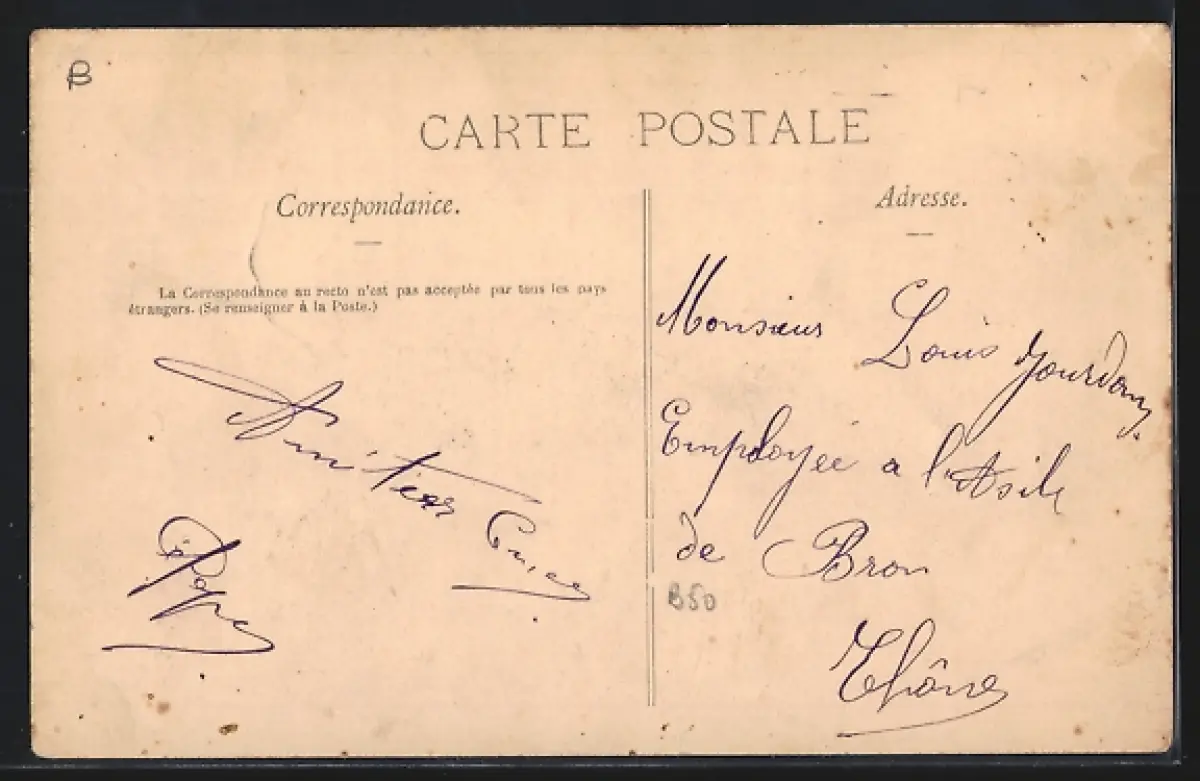 B
CARTE POSTALE
Correspondance.
La Correspondance au recto n'est pas acceptée par tous les pays
étrangers. (Se renseigner à la Poste.)
Adresse.
Monsieur Louis Jourdan
Employée a l'Asile
de Bron
B50
Rhône